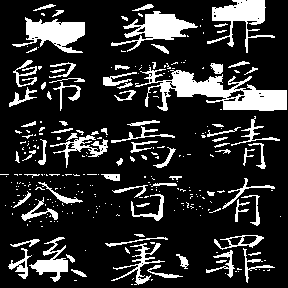 罪奚請有罪
奚講焉百裏
奚歸辭公孫